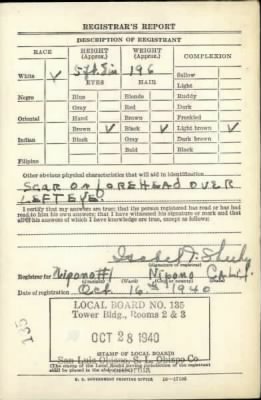 REGISTRAR'S REPORT
DESCRIPTION OF REGISTRANT
RACE HEIGHT (Approx.) WEIGHT (Approx.) COMPLEXION
5 ft. 5 in 196
White ✓ EYES HAIR Sallow
Light
Negro Blue Blonde Ruddy
Gray Red Dark
Oriental Hazel Brown Freckled
Brown ✓ Black ✓ Light brown ✓
Indian Black Gray Dark brown
Bald Black
Filipino
Other obvious physical characteristics that will aid in identification
SCAR ON FOREHEAD OVER
LEFT EYE.
I certify that my answers are true; that the person registered has read or has had
read to him his own answers; that I have witnessed his signature or mark and that
all of his answers of which I have knowledge are true, except as follows:
Isabel
(Signature of registrar)
Registrar for Nipomo #1 Nipomo CALIF.
Date of registration Oct 16th 1940
LOCAL BOARD NO. 135
Tower Bldg., Rooms 2 & 3
OCT 28 1940
(STAMP OF LOCAL BOARD)
San Luis Obispo, S. L. Obispo Co
(The stamp of the Local Board having jurisdiction of the registrant
shall be placed in the above space.)
135
U. S. GOVERNMENT PRINTING OFFICE 16-17105